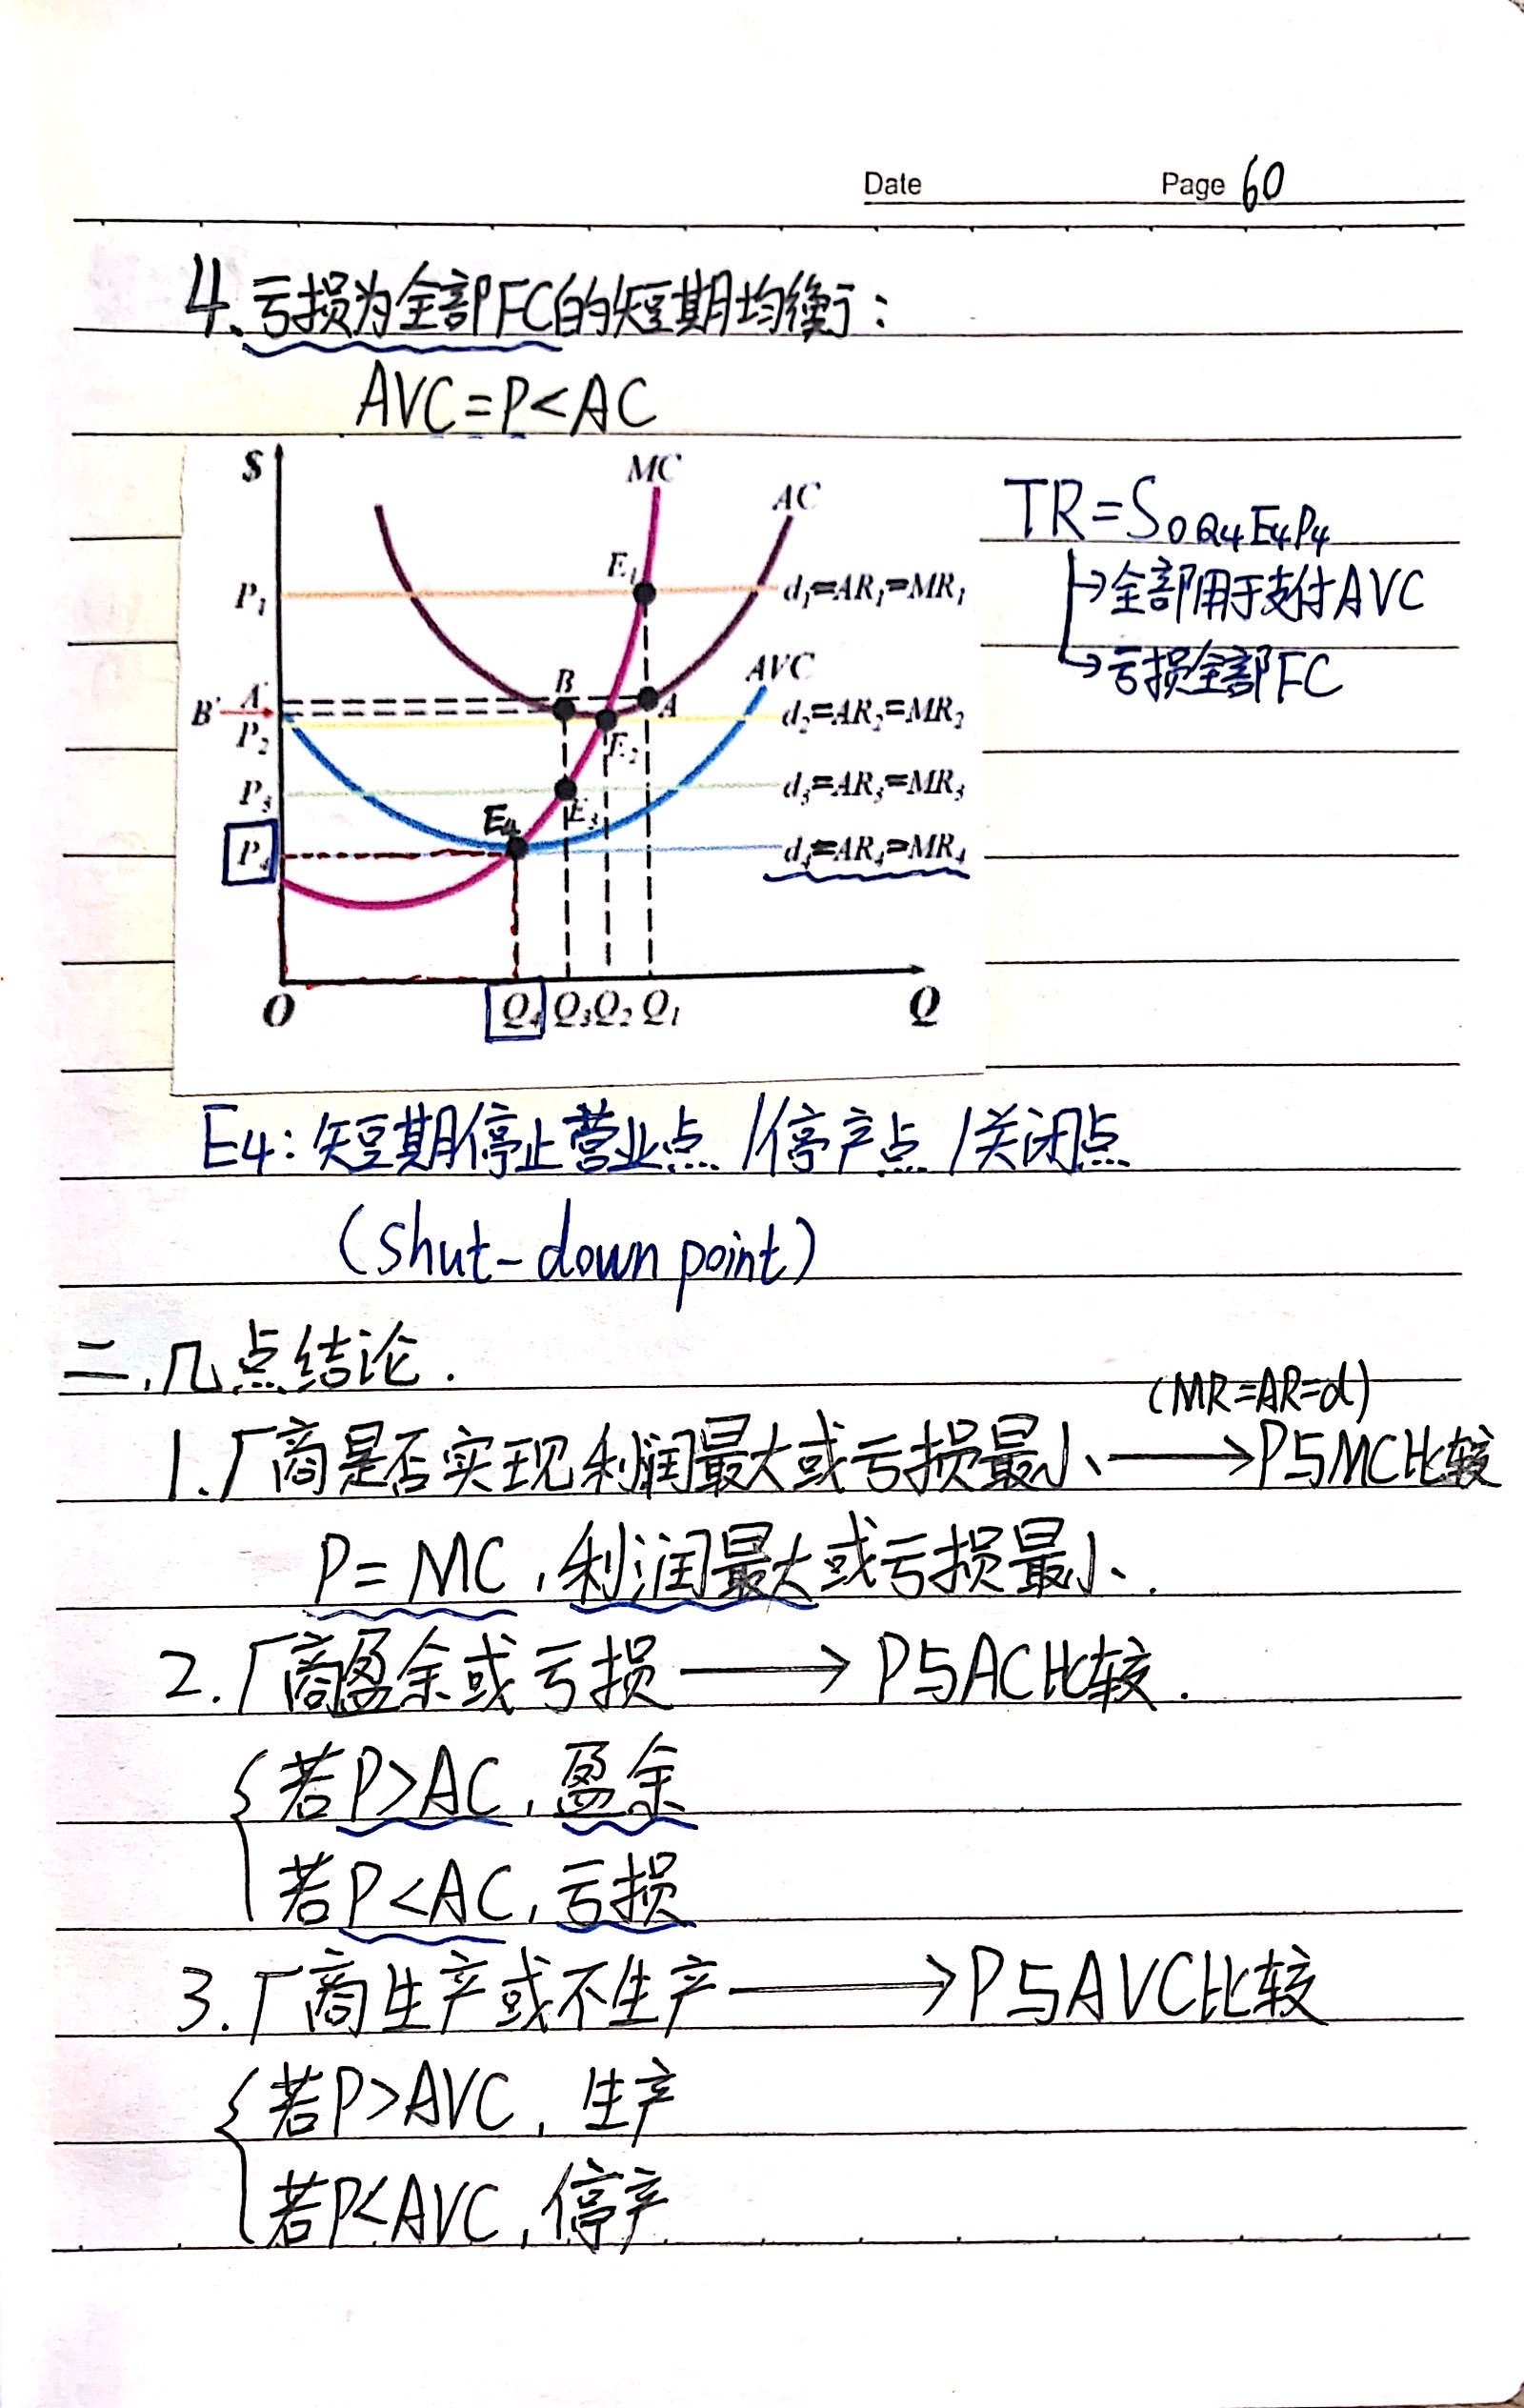 Date Page 60
4、亏损为全部FC的短期均衡：
AVC=P<AC
$
MC
AC
TR=S₀Q₄E₄P₄
→全部用于支付AVC
→亏损全部FC
E₁
P₁
d₁=AR₁=MR₁
AVC
B
A'
A
B'
d₂=AR₂=MR₂
P₂
E₂
P₃
d₃=AR₃=MR₃
E₃
E₄
P₄
d₄=AR₄=MR₄
O
Q₄ Q₃ Q₂ Q₁
Q
E4：短期停止营业点/停产点/关闭点
(shut-down point)
二、几点结论.
(MR=AR=d)
1.厂商是否实现利润最大或亏损最小→P与MC比较
P=MC，利润最大或亏损最小.
2.厂商盈余或亏损→P与AC比较.
{若P>AC，盈余
若P<AC，亏损
3.厂商生产或不生产→P与AVC比较
{若P>AVC，生产
若P<AVC，停产